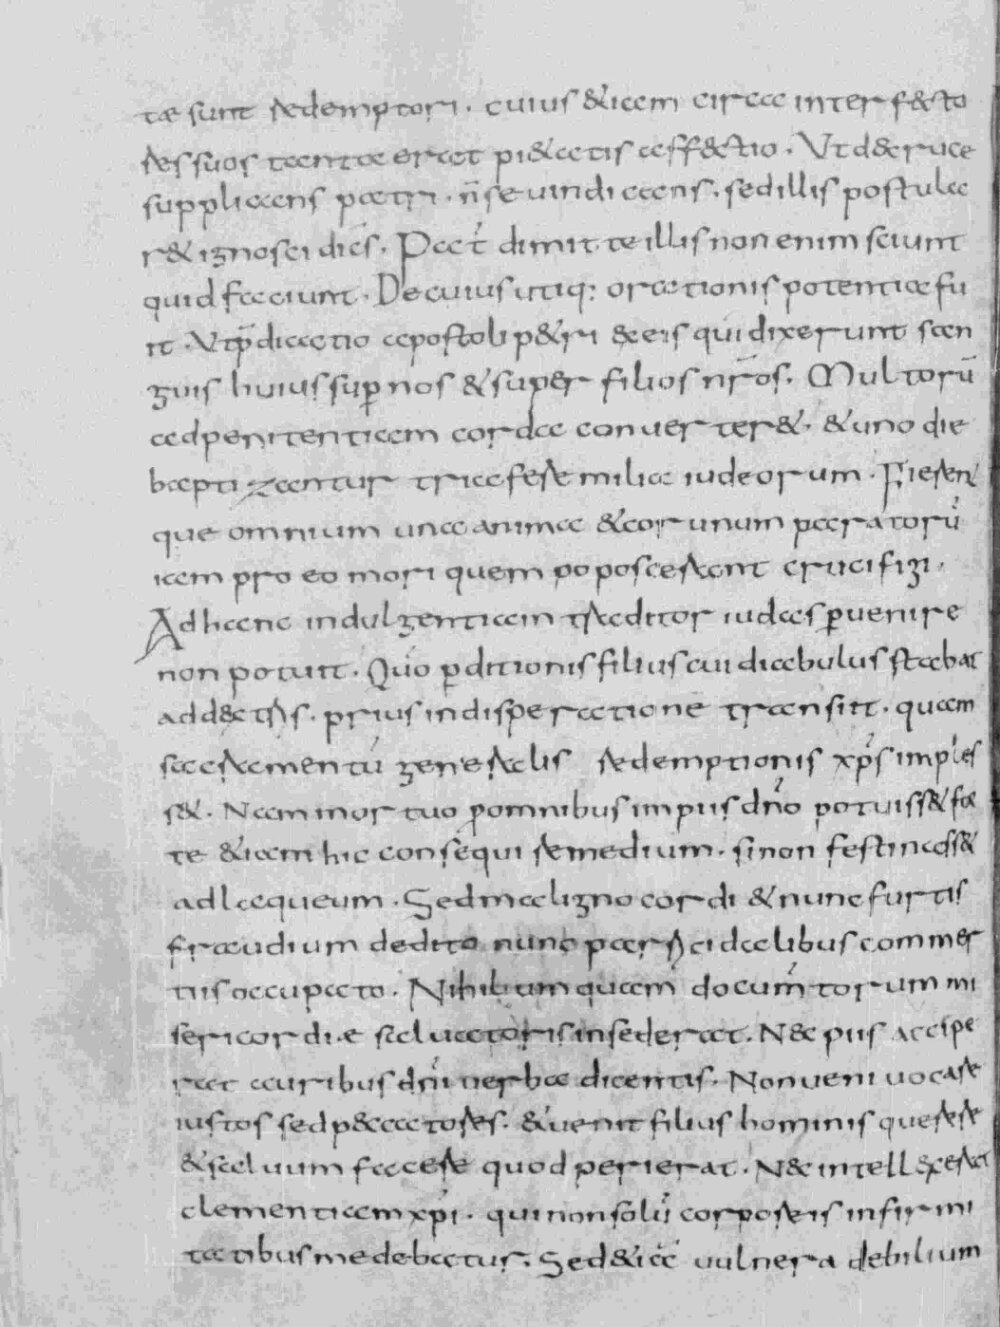 tae sunt redemptori. cuius &iam circa interf&cto
res suos tanta erat pi&atis aff&ctio. Vt de cruce
supplicans patri. n̄ se uindicans. sed illis postula
r& ignosci dic̄s. Pat̄ dimitte illis non enim sciunt
quid faciunt. De cuius itiq; orationis potentia fu
it. Vt p̄dicatio apostoli p&ri & eis qui dixerunt san
guis huius sup̱ nos & super filios nr̄os. Multorū
ad penitentiam corda conuerter&. & uno die
baptizantur tria fere milia iudeorum. Fieren
que omnium una anima & cor unum paratorū
iam pro eo mori quem poposcerant crucifigi.
Ad hanc indulgentiam traditor iudas p̱uenire
non potuit. Quo p̱ditionis filius cui diabulus stabat
ad dextris. prius in disperatione transiit. quam
sacramentū generalis redemptionis xp̄s imples
s&. Nam mortuo p omnibus impiis dn̄o potuiss& for
te &iam hic consequi remedium. si non festinass&
ad laqueum. Sed maligno cordi & nunc furtis
fraudium dedito nunc parricidalibus commer
tiis occupato. Nihil umquam documtorum mi
sericordie saluatoris insederat. N& piis accipe
rat auribus dn̄i uerba dicentis. Non ueni uocare
iustos sed p&catores. & uenit filius hominis querere
& saluum facere quod perierat. N& intellexerat
clementiam xp̄i. qui non solū corporeis infirmi
tatibus medebatur. Sed &iā uulnera debilium